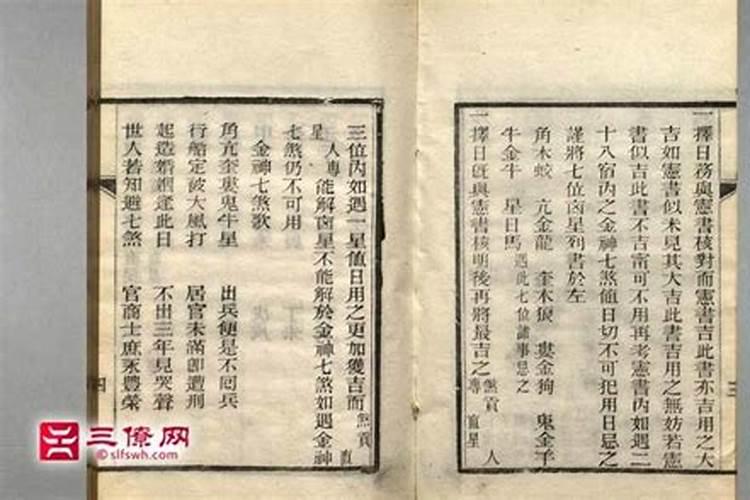 一擇日務與憲書核對而憲書吉此書亦吉用之大
吉如憲書似未見其大吉此書吉用之無妨若憲
書似吉此書不吉甯可不用再考憲書內如遇二
十八宿內之金神七煞值日切不可犯用日忌之
謹將七位凶星列書於左
角木蛟 亢金龍 奎木狼 婁金狗 鬼金羊
牛金牛 星日馬 遇此七位諸事忌之
一擇日旣與憲書核明後再將最吉之 煞貢 直星 人專
三位內如遇一星值日用之更加獲吉而 煞貢 直
星 人專 能解凶星不能解於金神七煞如遇金神
七煞仍不可用
金神七煞歌
角亢奎婁鬼牛星 出兵便是不回兵
行船定被大風打 居官未滿卽遭刑
起造婚姻逢此日 不出三年見哭聲
世人若知避七煞 官商士庶永豐榮
四
三僚网
©slfswh.com